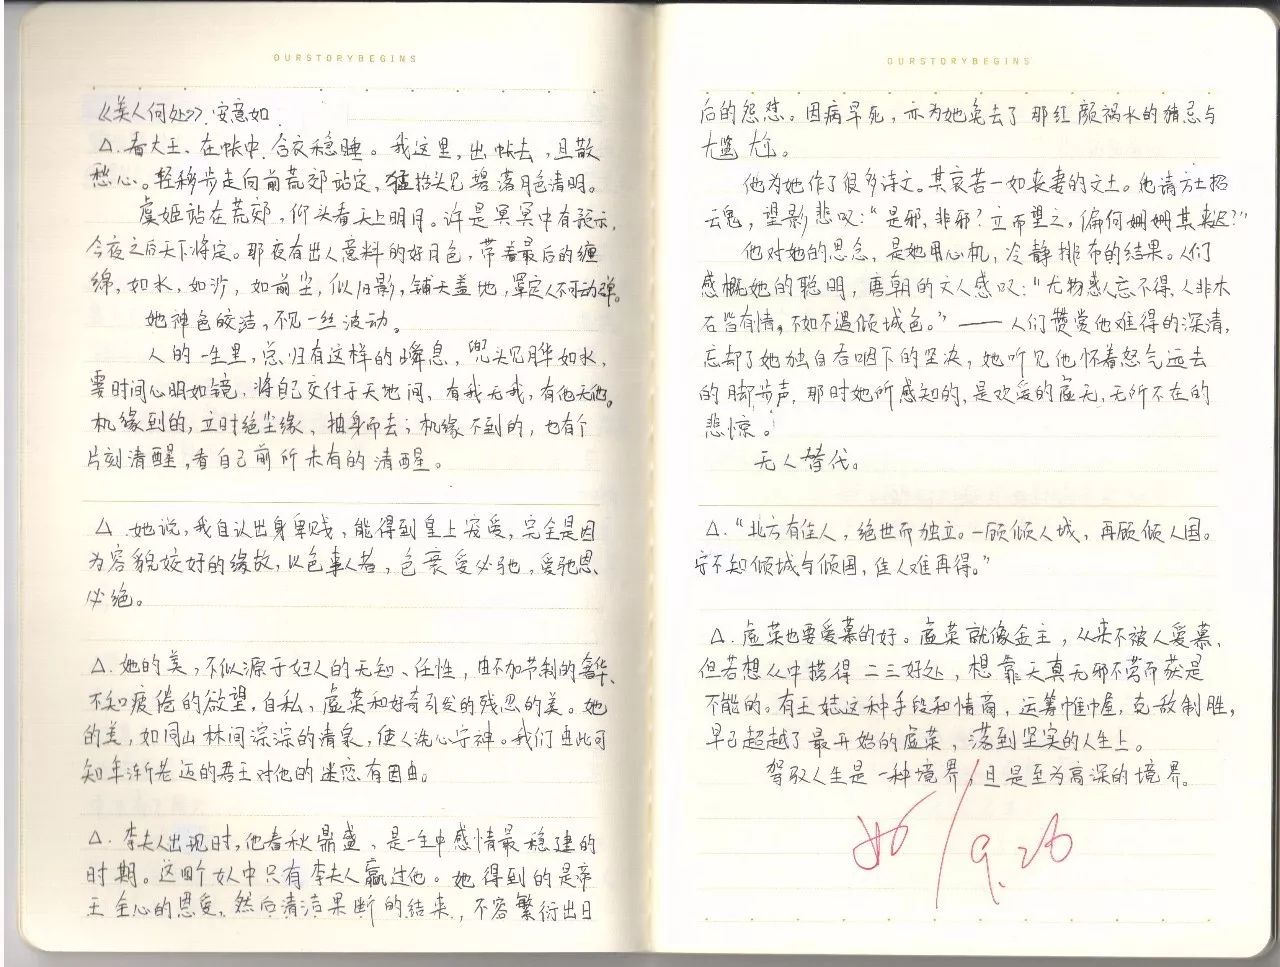 OURSTORYBEGINS
《美人何处》.安意如.
△.看大王、在帐中.合衣稳睡。我这里,出帐去,且散
愁心。轻移步走向前荒郊站定,猛抬头见碧落月色清明。
虞姬站在荒郊,仰头看天上明月。许是冥冥中有预示,
今夜之后天下将定。那夜有出人意料的好月色,带着最后的缠
绵,如水,如沙,如前尘,似旧影,铺天盖地,罩定人不可动弹。
她神色皎洁,不见一丝波动。
人的一生里,总归有这样的瞬息,兜头见月华如水,
霎时间心明如镜,将自己交付于天地间,有我无我,有他无他。
机缘到的,立时绝尘缘、抽身而去;机缘不到的,也有个
片刻清醒,看自己前所未有的清醒。
△.她说,我自认出身卑贱,能得到皇上宠爱,完全是因
为容貌姣好的缘故,以色事人者,色衰爱必弛,爱弛恩
必绝。
△.她的美,不似源于妇人的无知、任性,由不加节制的奢华、
不知疲倦的欲望,自私,虚荣和好奇引发的残忍的美。她
的美,如同山林间淙淙的清泉,使人洗心宁神。我们由此可
知年渐老迈的君王对他的迷恋有因由。
△.李夫人出现时,他春秋鼎盛,是一生中感情最稳建的
时期。这四个女人中只有李夫人赢过他。她得到的是帝
王全心的恩爱,然后清洁果断的结束,不容繁衍出日
OURSTORYBEGINS
后的怨怼。因病早死,亦为她免去了那红颜祸水的猜忌与
尴尬。
他为她作了很多诗文。其哀苦一如丧妻的文士。他请方士招
云魂,望影悲叹:"是邪,非邪?立而望之,偏何姗姗其来迟?"
他对她的思念,是她用心机,冷静排布的结果。人们
感概她的聪明,唐朝的文人感叹:"尤物惑人忘不得,人非木
石皆有情,不如不遇倾城色。"——人们赞赏他难得的深清,
忘却了她独自吞咽下的坚决,她听见他怀着怒气远去
的脚步声,那时她所感知的,是欢爱的虚无,无所不在的
悲惊。
无人替代。
△."北方有佳人,绝世而独立。一顾倾人城,再顾倾人国。
宁不知倾城与倾国,佳人难再得。"
△.虚荣也要爱慕的好。虚荣就像金主,从来不被人爱慕,
但若想从中捞得二三好处,想靠天真无邪不劳而获是
不能的。有王娡这种手段和情商,运筹帷幄,克敌制胜,
早已超越了最开始的虚荣,落到坚实的人生上。
驾驭人生是一种境界,且是至为高深的境界。
9.26